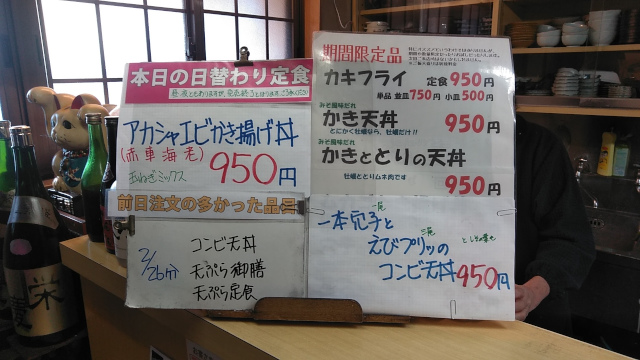 本日の日替わり定食
アカシャエビかき揚げ丼
(赤車海老)
玉ねぎミックス
950円
前日注文の多かった品
2/26分
コンビ天丼
天ぷら御膳
天ぷら定食
期間限定品
カキフライ 定食950円
単品 並皿750円 小皿500円
みそ風味だれ
かき天丼 950円
とにかく牡蠣なら、牡蠣だけ!!
みそ風味だれ
かきととりの天丼
牡蠣ととりムネ肉です
950円
一本穴子と
えびプリッの
コンビ天丼950円
栄